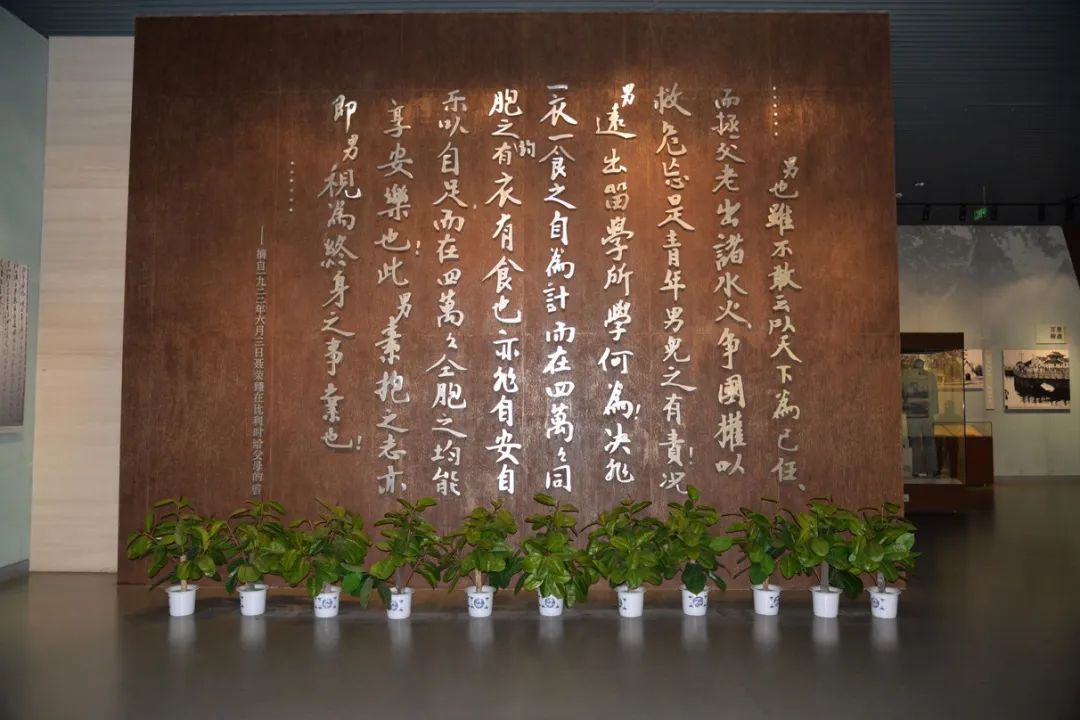 ……男也雖不敢云以天下為己任、
而拯父老出諸水火、争國權以
救危忘是青年男兒之有責！況
男遠出留學所學何為！決非
一衣一食之自為計而在四萬々同
胞之均有衣有食也亦非自安自
乐以自足、而在四萬々仝胞之均能
享安樂也！此男素抱之志亦
即男視為終身之事業也！
……
——摘自一九二二年六月三日聂荣臻在比利时给父母的信